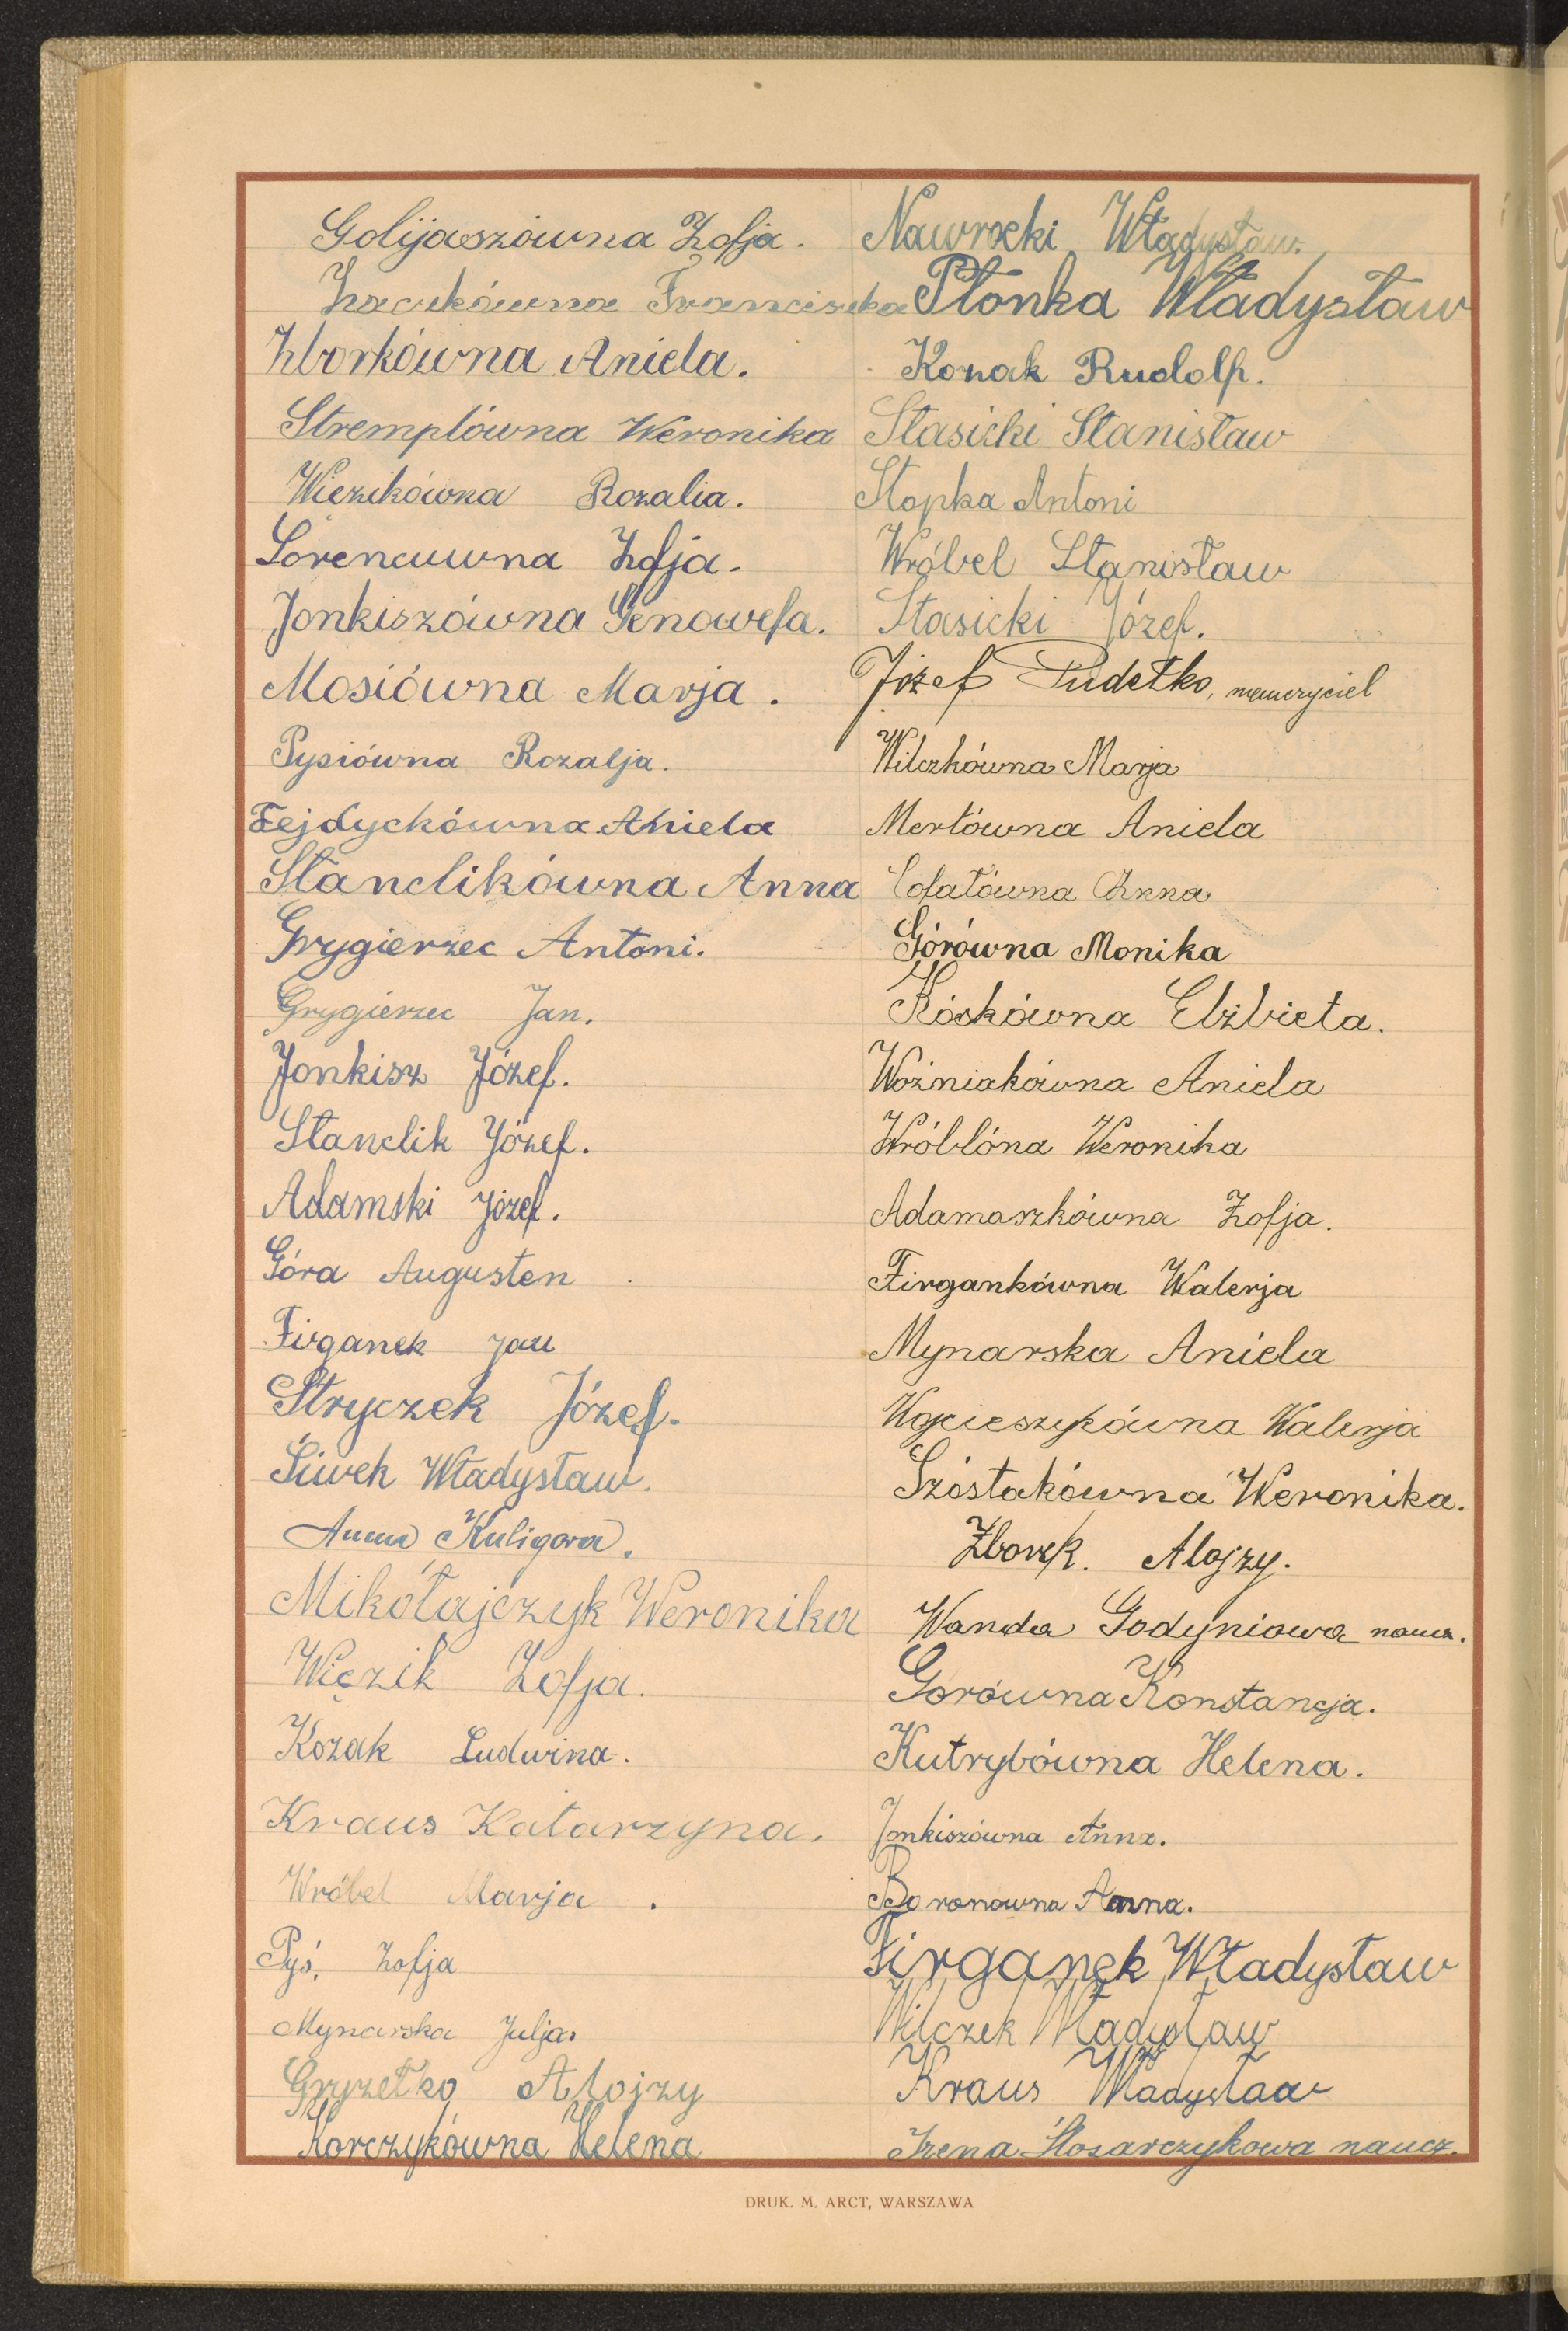 Golijaszówna Zofja.
Zaczkówna Franciszka
Zborkówna Aniela.
Stremplówna Weronika
Wiezikówna Rozalia.
Lorencuwna Zofja.
Jonkiszówna Genowefa.
Mosiówna Marja.
Pysiówna Rozalja.
Fejdyckówna Aniela
Stanclikówna Anna
Grygierzec Antoni.
Grygierzec Jan.
Jonkisz Józef.
Stanclik Józef.
Adamski Józef.
Góra Augusten
Firganek Jan
Stryczek Józef.
Siwek Władysław.
Anna Kuligowa.
Mikołajczyk Weronika
Więzik Zofja.
Kozak Ludwina.
Kraus Katarzyna.
Wróbel Marja.
Pyś, Zofja
Mynarska Julja.
Gryzełko Alojzy
Korczykówna Helena
Nawrocki Władysław.
Płonka Władysław
Konak Rudolf.
Stasicki Stanisław
Stopka Antoni
Wróbel Stanisław
Stasicki Józef.
Józef Pudełko, nauczyciel
Wilczkówna Marja
Mertówna Aniela
Cofałówna Anna
Górówna Monika
Kóskówna Elżbieta.
Woźniakówna Aniela
Wróblóna Weronika
Adamaszkówna Zofja.
Firgankówna Walerja
Mynarska Aniela
Wojcieszykówna Walerja
Szóstakówna Weronika.
Zborek. Alojzy.
Wanda Godyniowa naucz.
Górówna Konstancja.
Kutrybówna Helena.
Jonkiszówna Anna.
Baronowna Anna.
Firganek Władysław
Wilczek Władysław
Kraus Władysław
Irena Ślosarczykowa naucz.
DRUK. M. ARCT, WARSZAWA